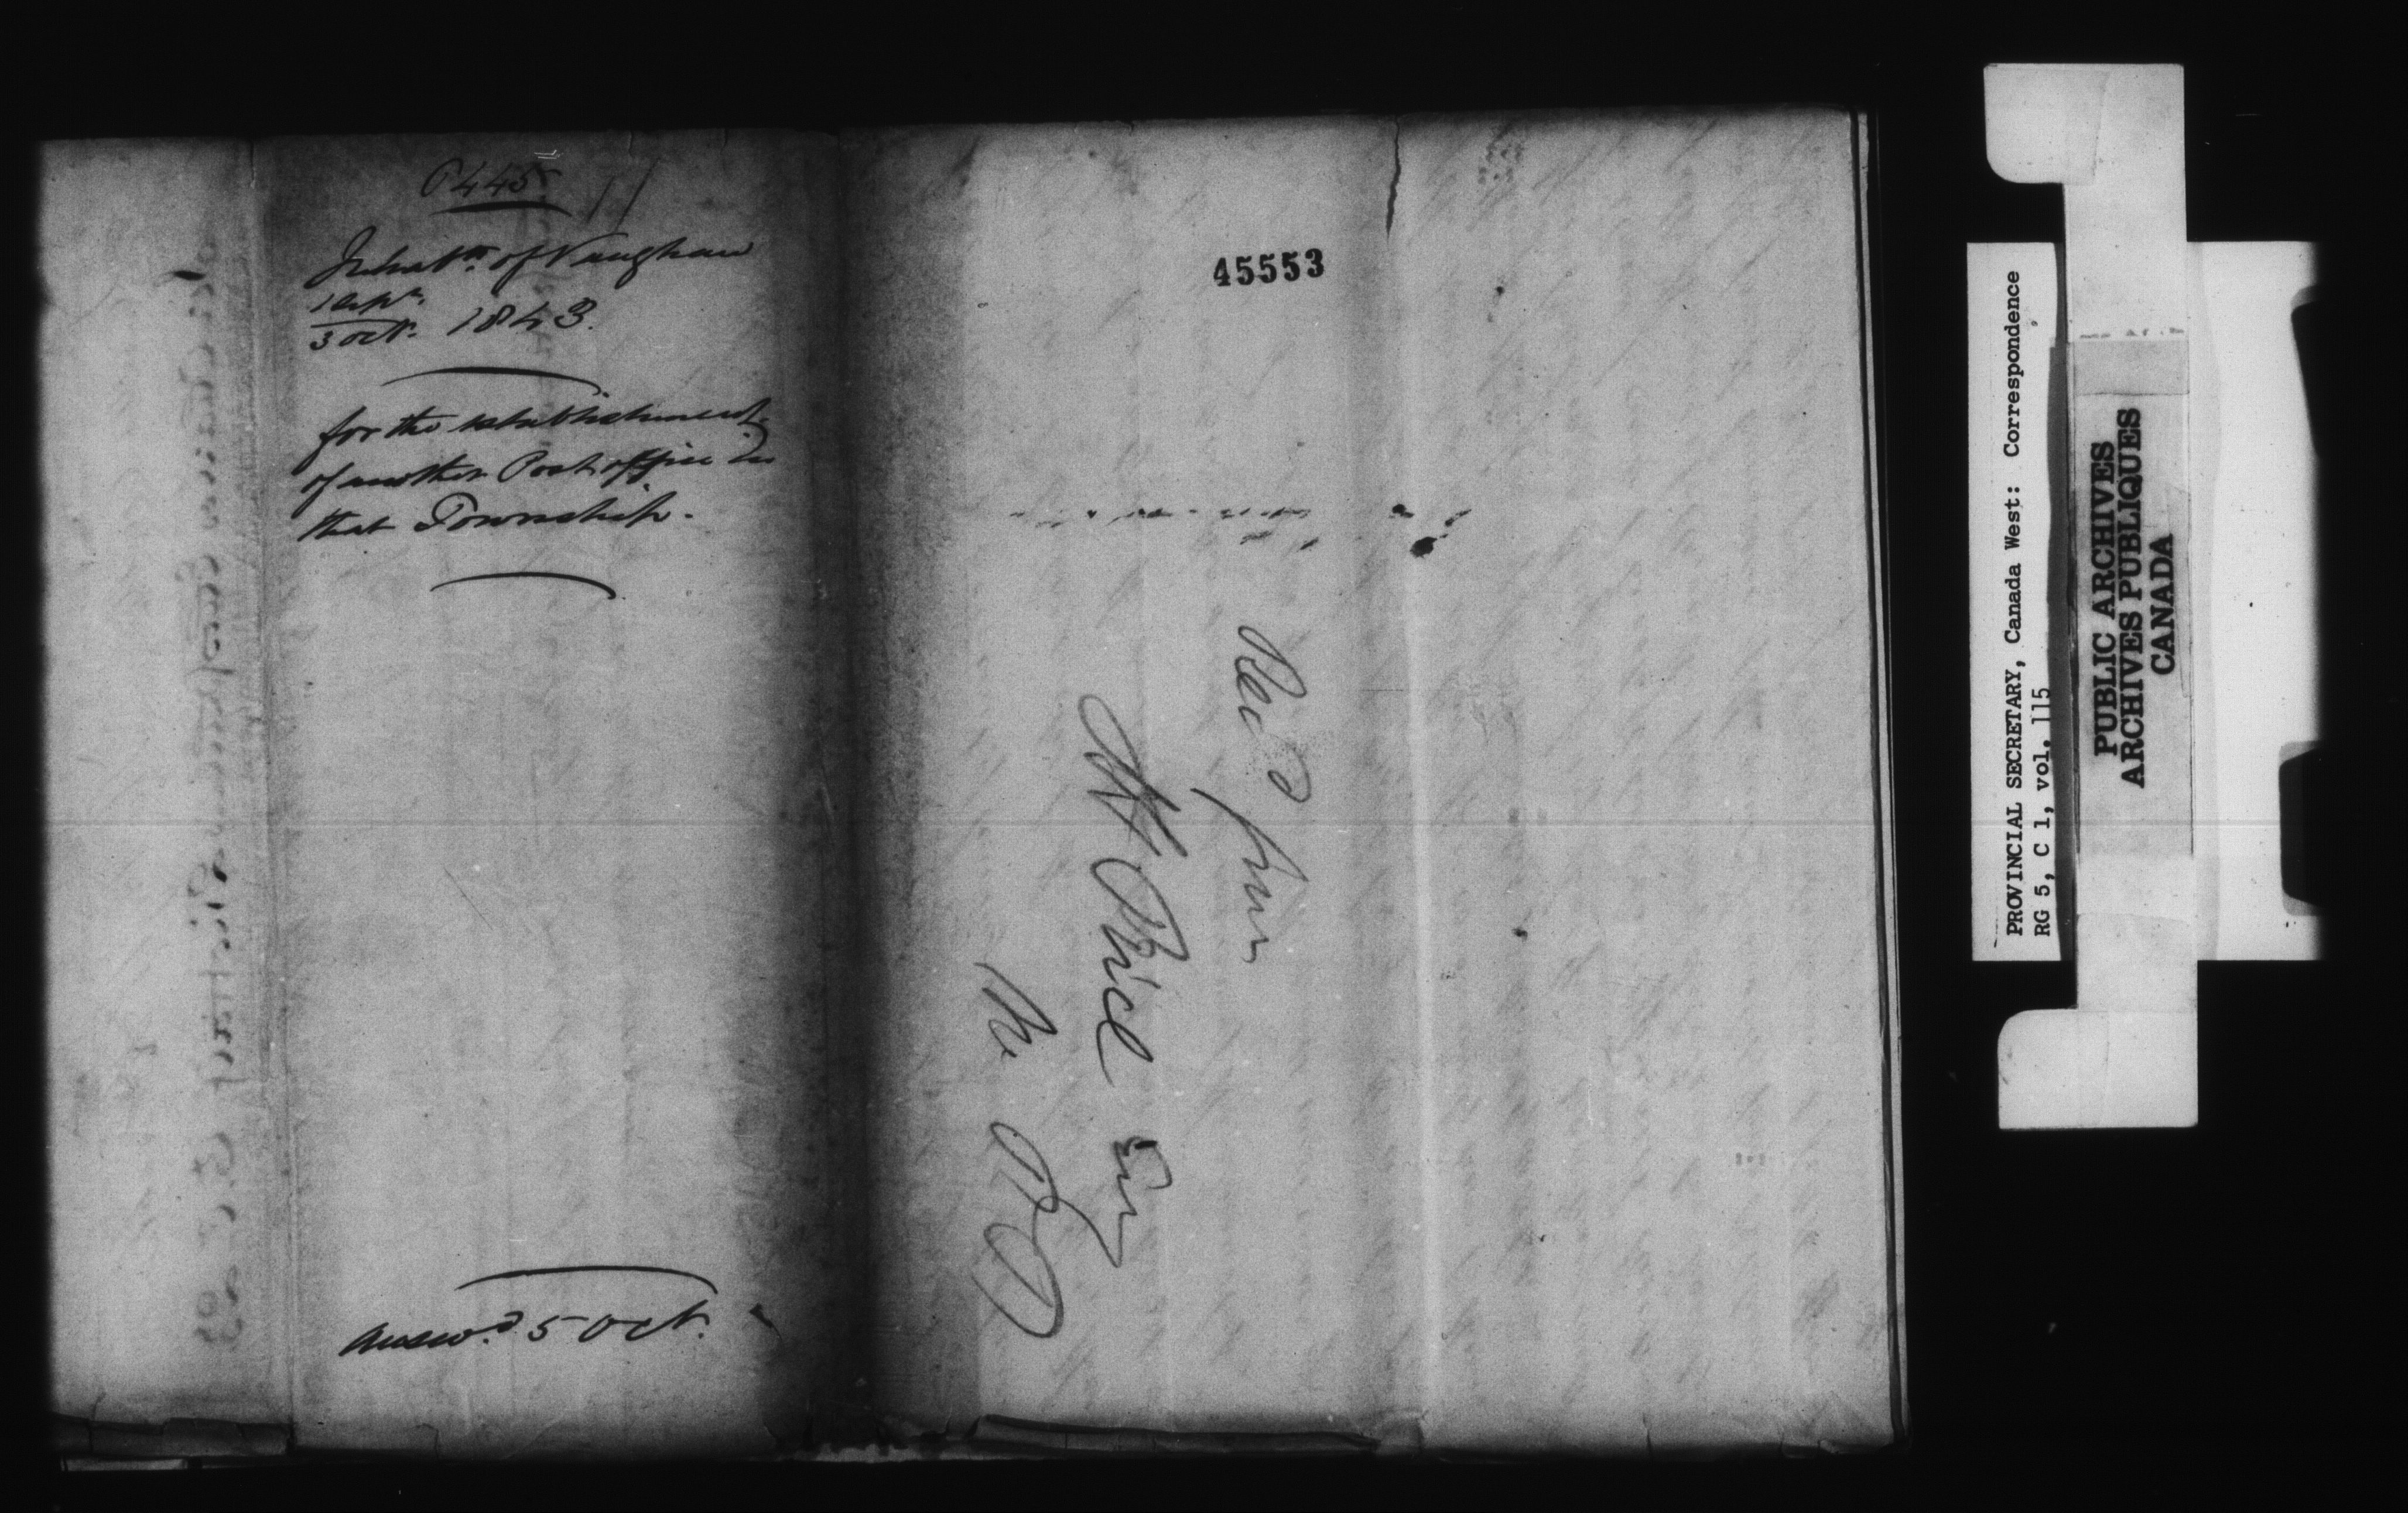 6445
Inhabts. of Vaughan
1 Sept.
3 Oct. 1843.
for the establishment
of another Post office in
that Township.
Answd. 5 Oct.
45553
Recd from
Price Esq
PROVINCIAL SECRETARY, Canada West: Correspondence
RG 5, C 1, vol. 115
PUBLIC ARCHIVES
ARCHIVES PUBLIQUES
CANADA